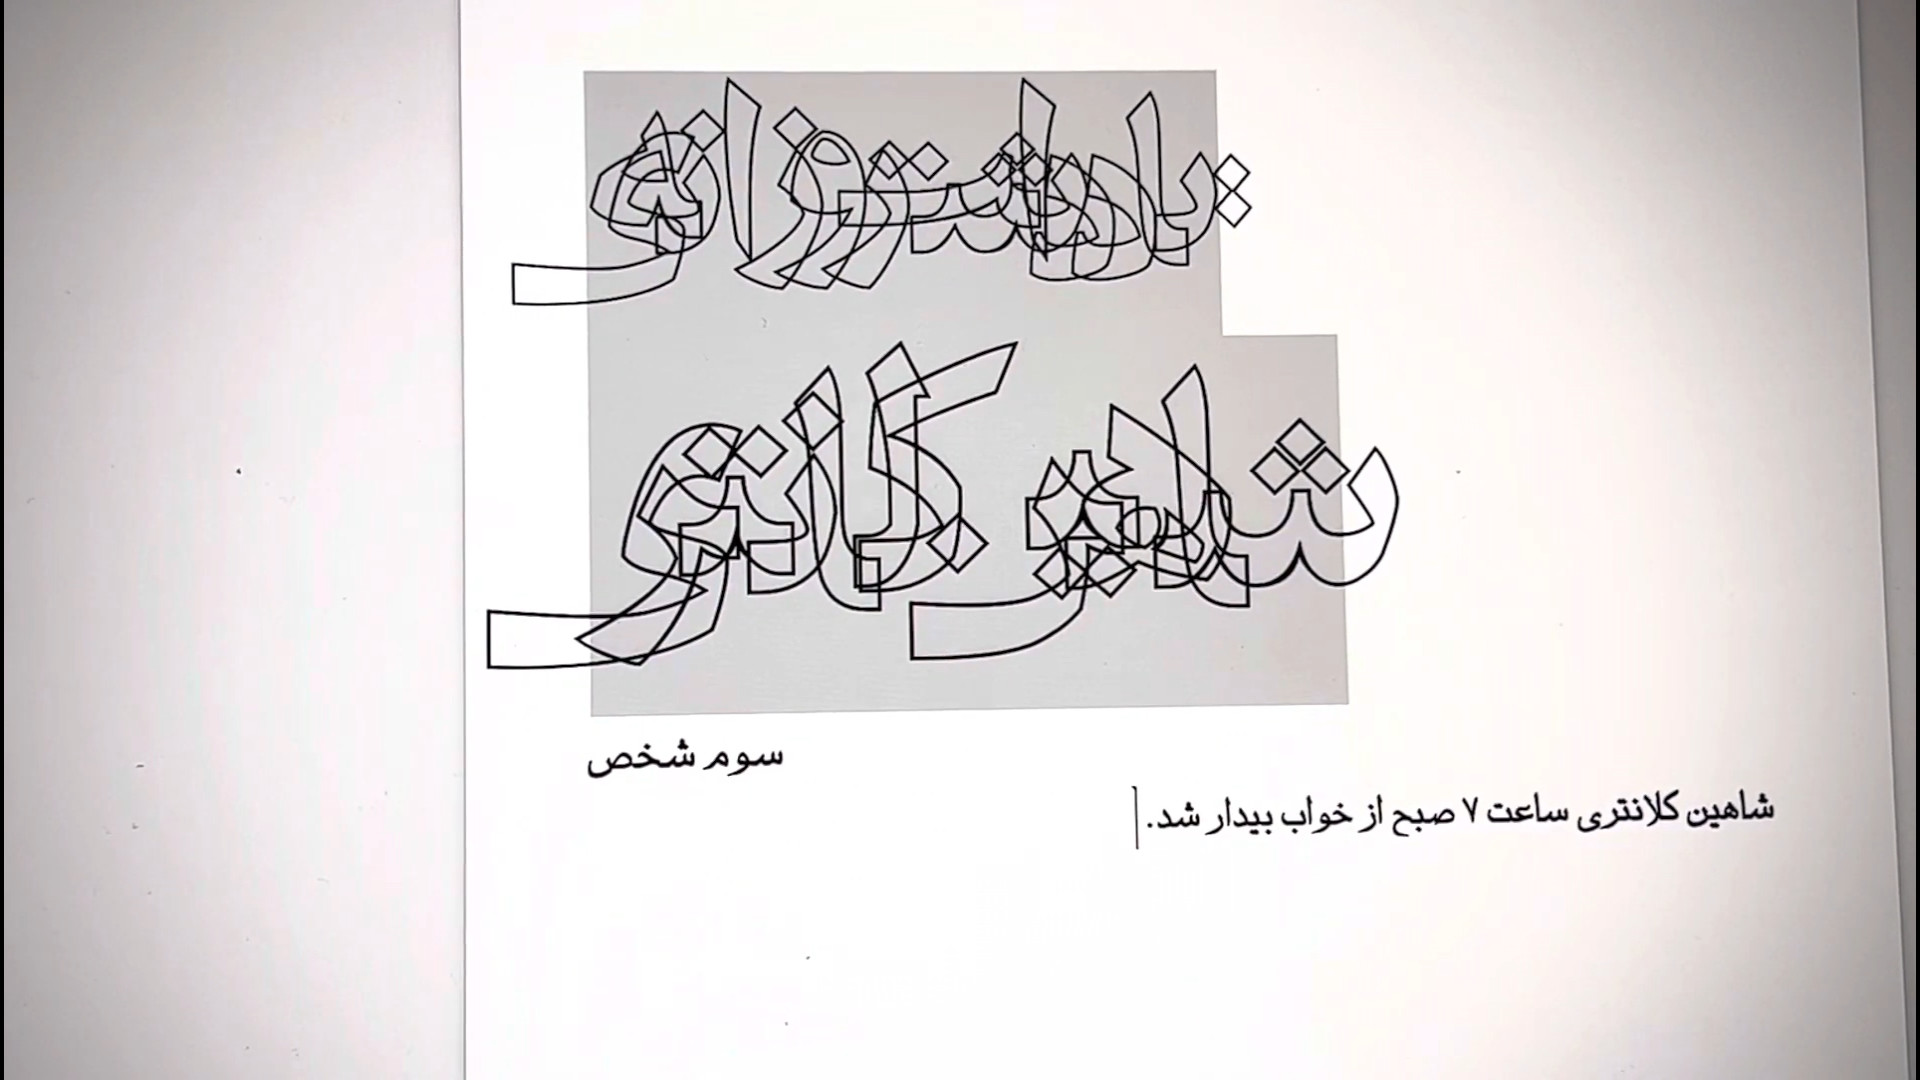 یادداشت روزانه‌ی
شاهین کلانتری
سوم شخص
شاهین کلانتری ساعت ۷ صبح از خواب بیدار شد.